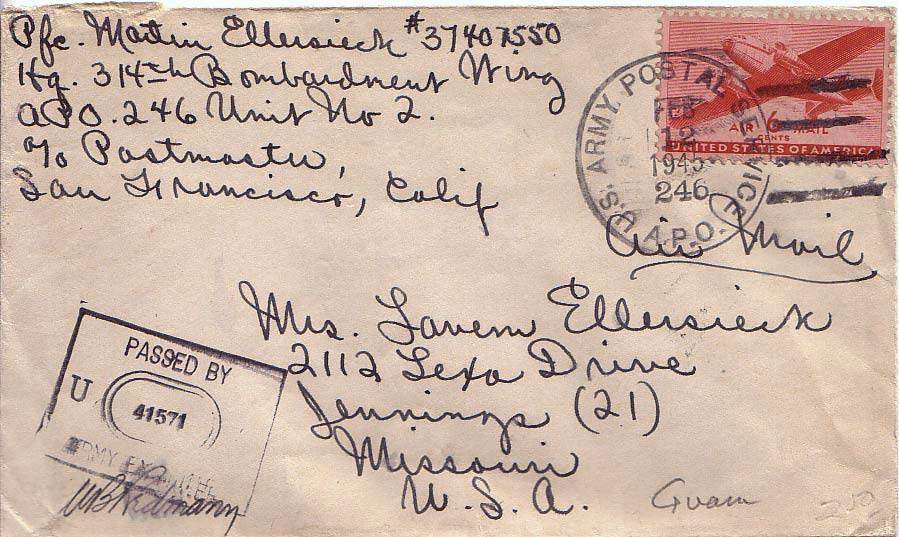 Pfc. Martin Ellersieck #37407550
Hq. 314th Bombardment Wing
APO. 246 Unit No 2.
c/o Postmaster,
San Francisco, Calif
U.S. ARMY POSTAL SERVICE
FEB
12
1945
246
A.P.O.
AIR 6 MAIL
CENTS
UNITED STATES OF AMERICA
Air Mail
Mrs. Lavern Ellersieck
2112 Lexa Drive
Jennings (21)
Missouri
U.S.A.
PASSED BY
U
41571
ARMY EXAMINER
Guam